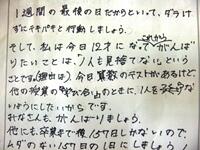 1週間の最後の日だからといって、ダラけ
ずにテキパキと行動しましょう。
これから
そして、私は今日12才になって"がんば
りたいことは、「人を見捨てない」という
ことです。(理由は)今日算数のテストがあるけど、
他の授業の のときに、1人を
ないようにしたいからです。
みなさんも、がんばりましょう。
他にも、授業まで後157日しかないので、
ムダのない157日の1日にしましょう